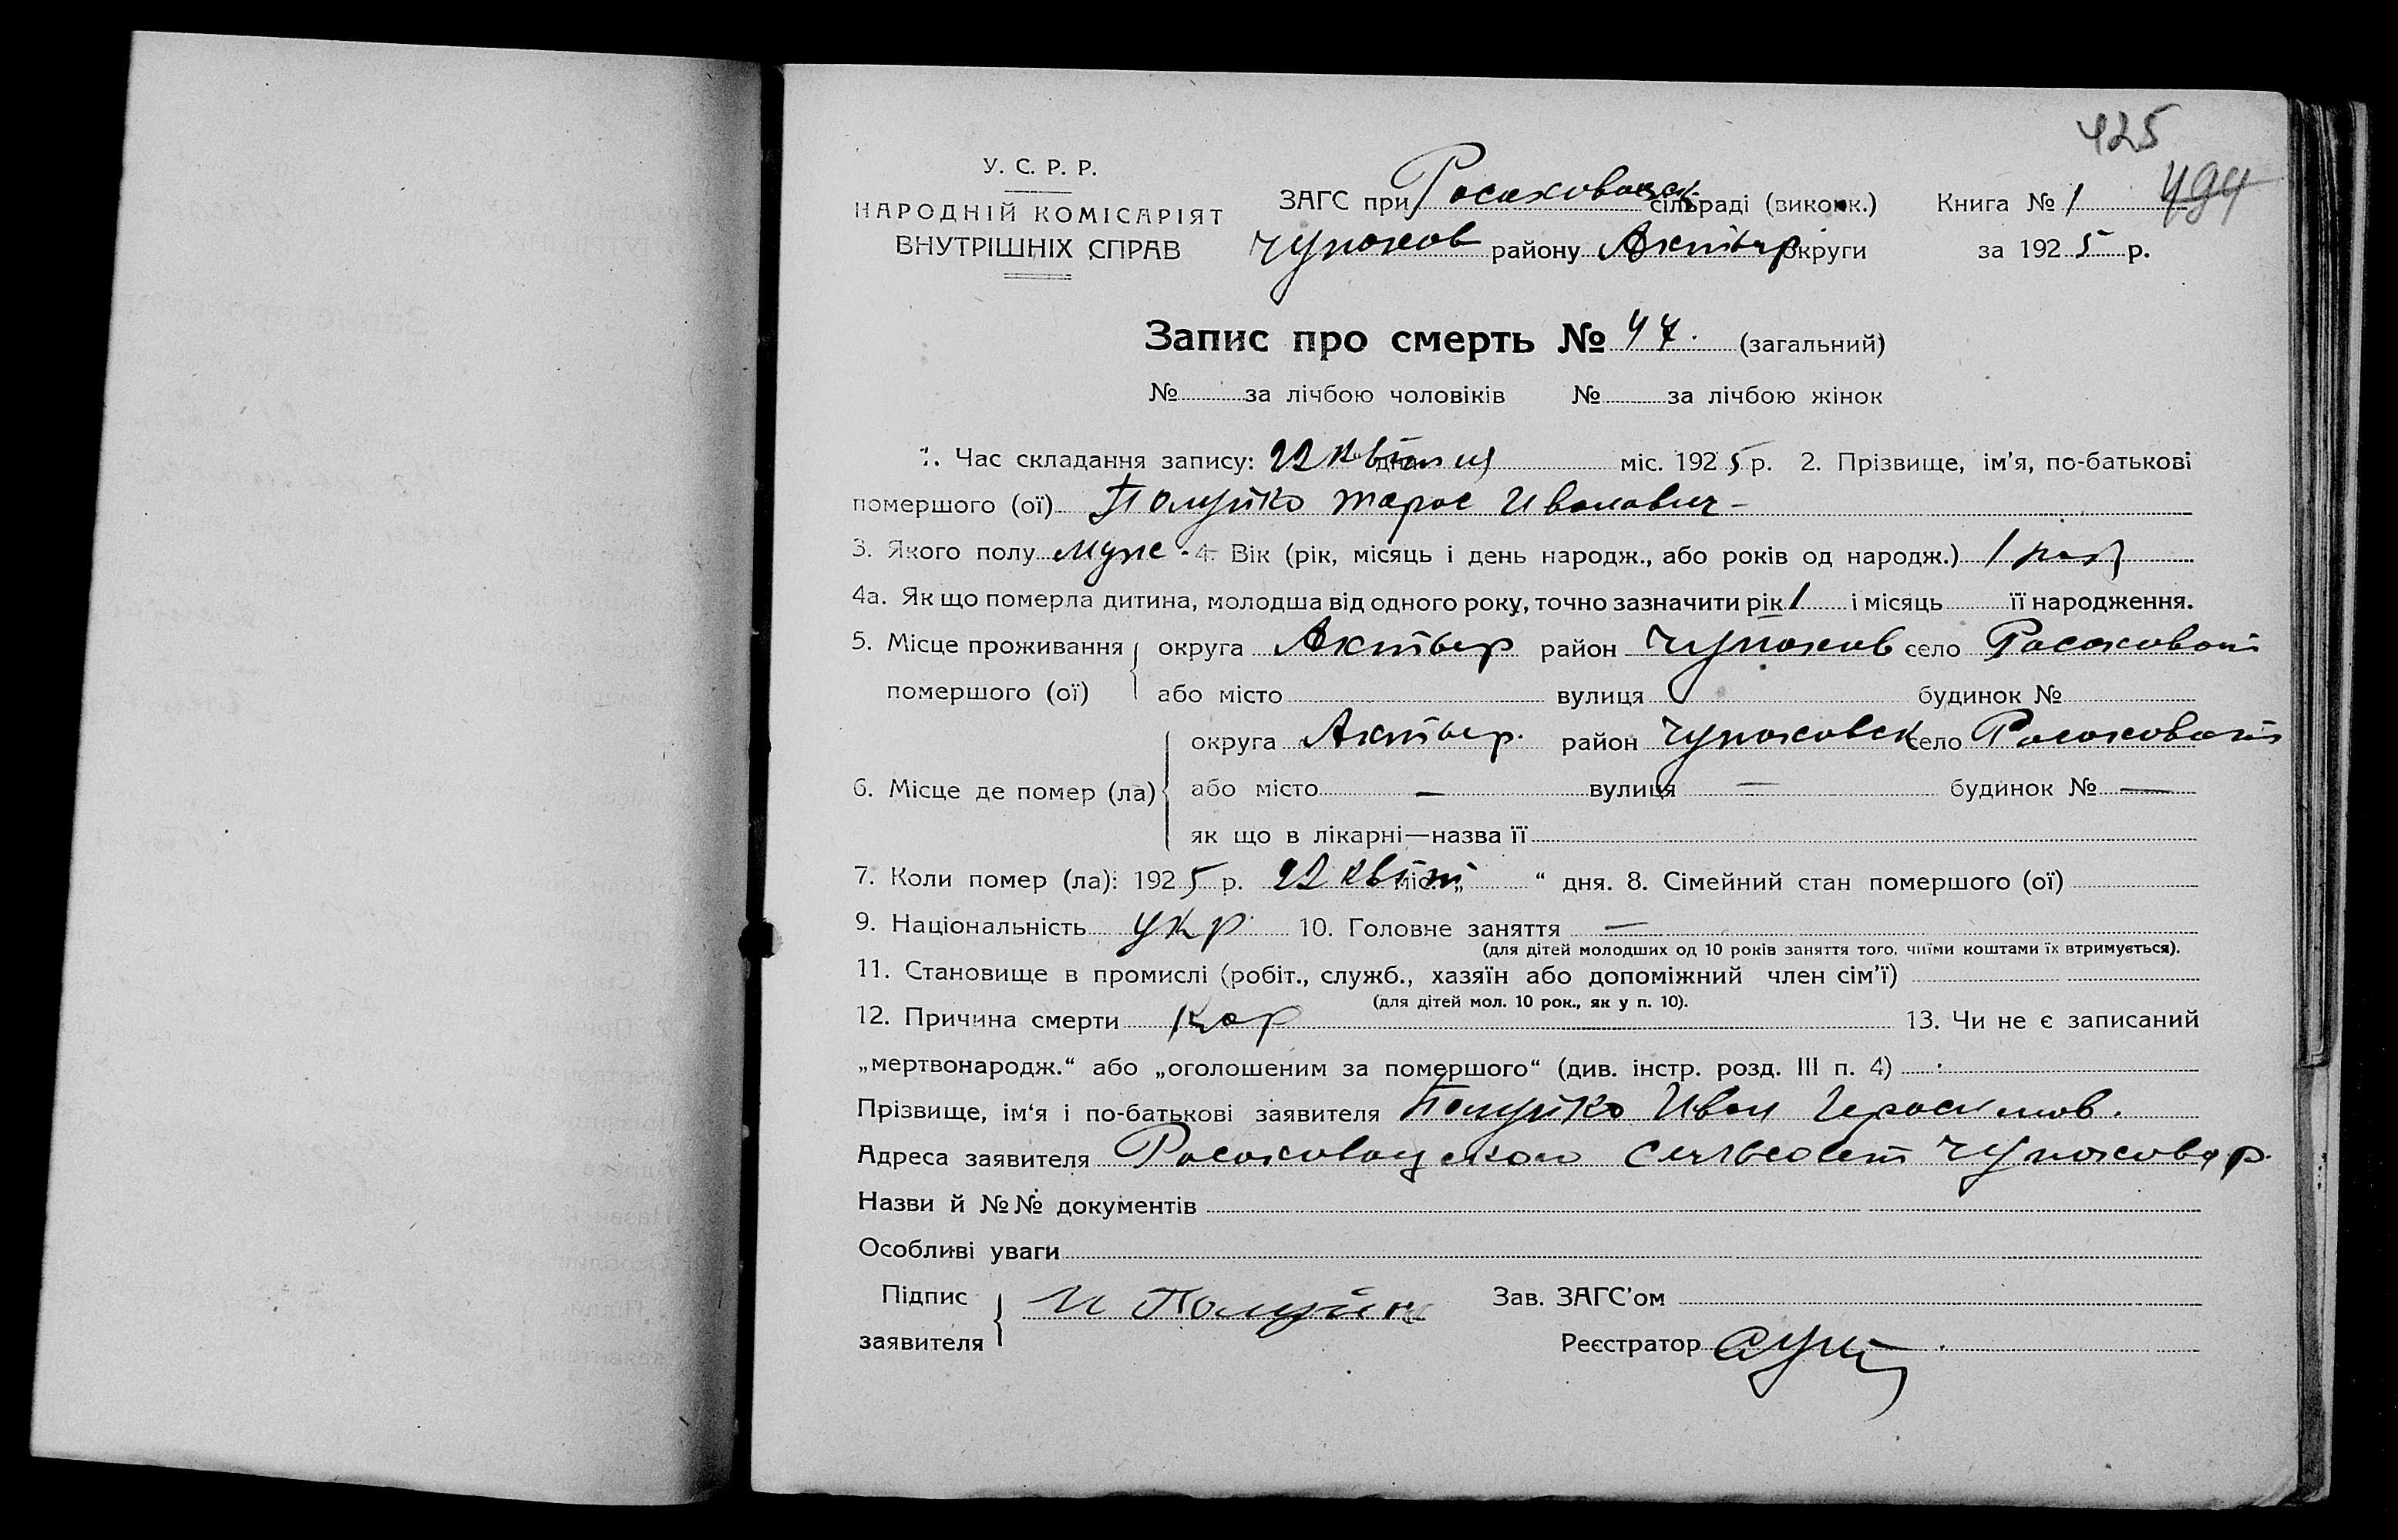 425
У. С. Р. Р.
НАРОДНІЙ КОМІСАРІЯТ
ВНУТРІШНІХ СПРАВ
ЗАГС при Росоховацск сільраді (виконк.)
Чупахов району Ахтыр округи
Книга № 1 494
за 1925 р.
Запис про смерть № 47. (загальний)
№ за лічбою чоловіків № за лічбою жінок
1. Час складання запису: 22 квітня дня міс. 1925 р. 2. Прізвище, ім’я, по-батькові
помершого (ої) Полуйко Тарас Иванович -
3. Якого полу муже. 4. Вік (рік, місяць і день народж., або років од народж.) 1 год
4а. Як що померла дитина, молодша від одного року, точно зазначити рік 1 і місяць її народження.
5. Місце проживання округа Ахтыр район Чупахов село Росоховат
помершого (ої) або місто вулиця будинок №
округа Ахтыр. район Чупаховск село Росоховат
6. Місце де помер (ла) або місто — вулиця — будинок № —
як що в лікарні—назва її
7. Коли помер (ла): 1925 р. 22 квіт міс. „ “ дня. 8. Сімейний стан помершого (ої)
9. Національність укр 10. Головне заняття —
(для дітей молодших од 10 років заняття того, чиїми коштами їх втримується).
11. Становище в промислі (робіт., служб., хазяїн або допоміжний член сім’ї)
(для дітей мол. 10 рок., як у п. 10).
12. Причина смерти кор 13. Чи не є записаний
„мертвонародж.“ або „оголошеним за помершого“ (див. інстр. розд. III п. 4)
Прізвище, ім‘я і по-батькові заявителя Полуйко Иван Герасимов.
Адреса заявителя Росоховацского сельсовет Чупахов р.
Назви й №№ документів
Особливі уваги
Підпис
заявителя И Полуйк
Зав. ЗАГС’ом
Реєстратор